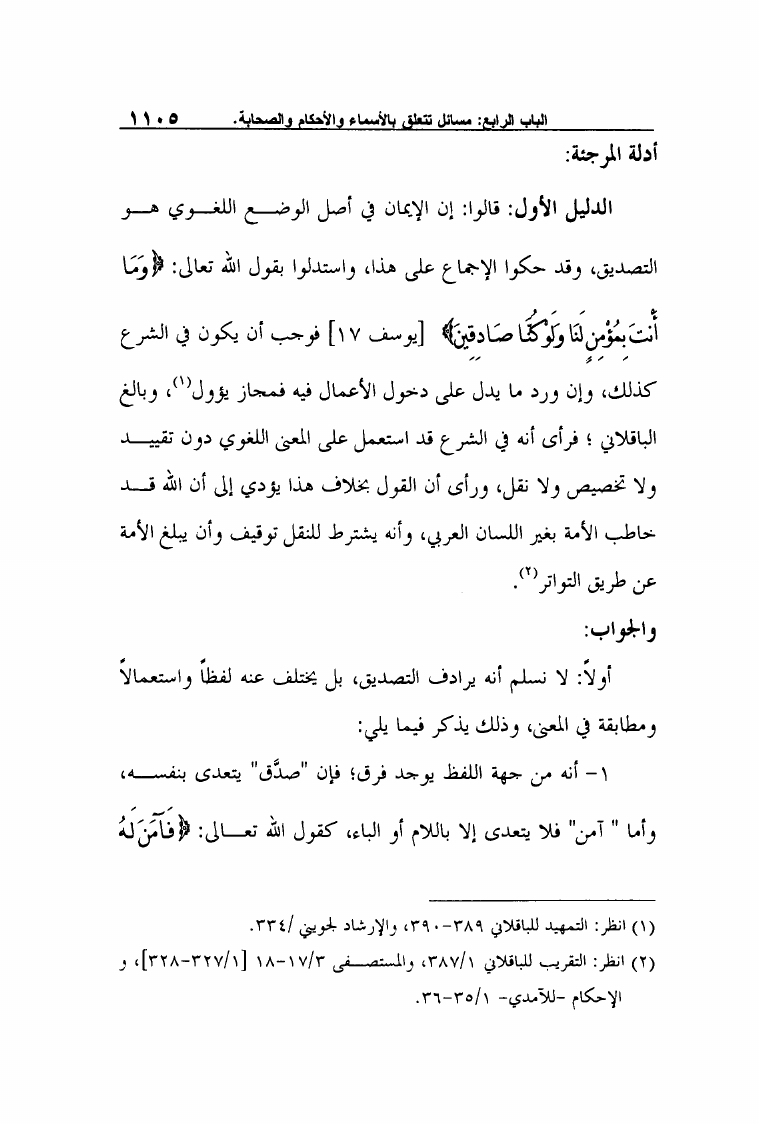 الباب الرابع: مسائل تتعلق بالأسماء والأحكام والصحابة. ١١٠٥
أدلة المرجئة:
الدليل الأول: قالوا: إن الإيمان في أصل الوضع اللغوي هو
التصديق، وقد حكوا الإجماع على هذا، واستدلوا بقول الله تعالى: ﴿وَمَا
أَنتَ بِمُؤْمِنٍ لَنَا وَلَوْ كُنَّا صَادِقِينَ﴾ [يوسف ١٧] فوجب أن يكون في الشرع
كذلك، وإن ورد ما يدل على دخول الأعمال فيه فمجاز يؤول(١)، وبالغ
الباقلاني ؛ فرأى أنه في الشرع قد استعمل على المعنى اللغوي دون تقييد
ولا تخصيص ولا نقل، ورأى أن القول بخلاف هذا يؤدي إلى أن الله قد
خاطب الأمة بغير اللسان العربي، وأنه يشترط للنقل توقيف وأن يبلغ الأمة
عن طريق التواتر(٢).
والجواب:
أولاً: لا نسلم أنه يرادف التصديق، بل يختلف عنه لفظاً واستعمالاً
ومطابقة في المعنى، وذلك يذكر فيما يلي:
١- أنه من جهة اللفظ يوجد فرق؛ فإن "صدَّق" يتعدى بنفسه،
وأما " آمن" فلا يتعدى إلا باللام أو الباء، كقول الله تعالى: ﴿فَآمَنَ لَهُ
(١) انظر: التمهيد للباقلاني ٣٨٩-٣٩٠، والإرشاد لجويني /٣٣٤.
(٢) انظر: التقريب للباقلاني ٣٨٧/١، والمستصفى ١٧/٣-١٨ [٣٢٧/١-٣٢٨]، و
الإحكام -للآمدي- ٣٥/١-٣٦.